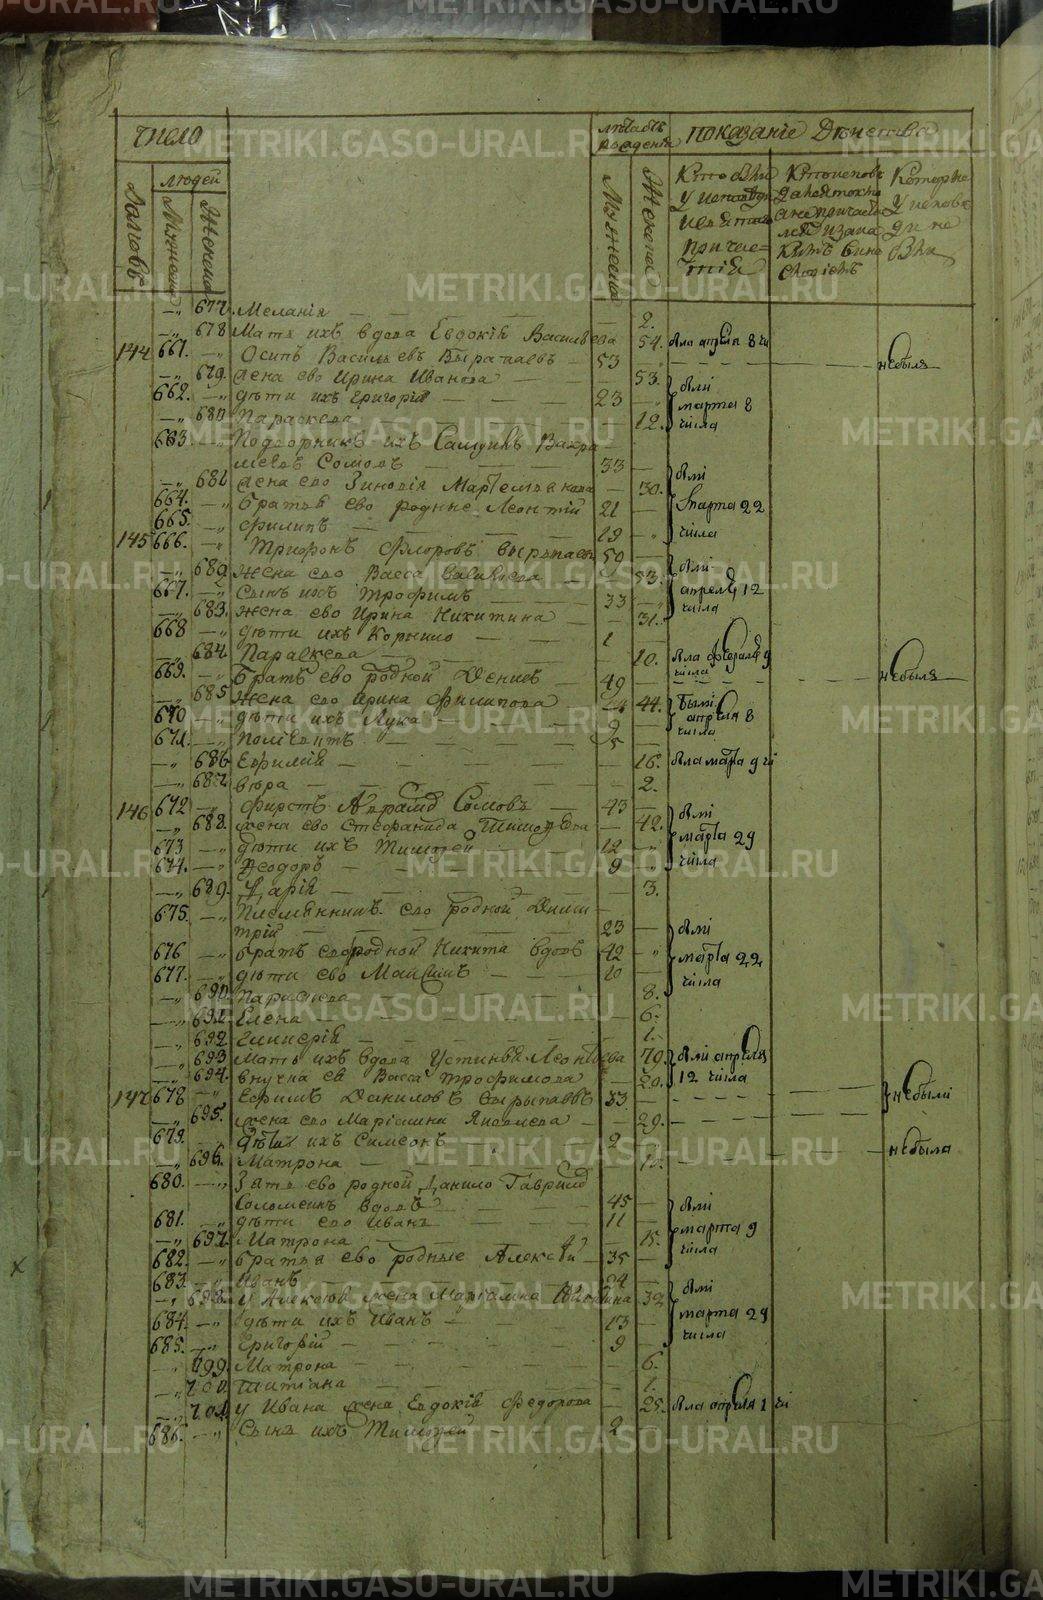 число
лѣта отъ рожденія
показаніе Дѣиства
Дворовъ
людей
Мужеска
Женска
Мужеска
Женска
Кто были у исповѣди и святаго причастія
Которые
677. Меланія 2.
678 Мать ихъ вдова Евдокія Васильева 54. была апреля 8 чи
144 661. Осипъ Васильевъ Вырапаевъ 53 небыля
679. жена ево Ирина Иванова 53.
662. дѣти ихъ Григорій 23
были марта 8 числа
680 Параскева 12.
663. Подворникъ ихъ Самуилъ Вахра
меевъ Сомовъ 33
681 жена ево Зиновія Мартемьянова 30.
были марта 22 числа
664. братья ево родные Леонтій 21
665. Филипъ 19
145 666. Трифонъ Флоровъ вырапаевъ 50
682. жена ево Васса Савельева 53.
были апреля 12 числа
667. сынъ ихъ Трофимъ 33
683. жена ево Ирина Никитина 31.
668 дѣти ихъ Корнило 1
684. Параскева 10. была февраля 9 числа
669. братъ ево родной Денисъ 49 небыля
685 жена ево Ирина Филипова 44.
были апреля 8 числа
670 дѣти ихъ Лука 9
671. Поліевктъ 5
686 Еврилія 16. была марта 9 чі
687. 2.
146 672 Аврамъ Сомовъ 43
688. жена ево Стефанида Тимофеева 42.
были марта 29 числа
673 дѣти ихъ Тимофей 12
674. Феодоръ 9
689. Дарія 3.
675. Племянникъ ево родной Дими
трій 23
были марта 22 числа
676 братъ ево родной Никита вдовъ 42
677. дѣти ево Максимъ 10
690. Параскева 8.
691. Елена 6.
692 Гликерія 1.
693 мать ихъ вдова Устинья Леонтьева 70. были апреля
694. внучка ея Васса Трофимова 20. 12 числа
147 678 Ефимъ Даниловъ вырыпаевъ 33. небыли
695. жена ево Маріамна Яковлева 29.
679. дѣти ихъ Симеонъ 2
696. Матрона небыла
680. Зять ево родной Данило Гаврилов
Соломеинъ вдовъ 45
были марта 9 числа
681. дѣти ево Иванъ 11
697. Матрона 15.
682. братья ево родные Алексѣй 35
683. Иванъ 24
698. у Алексѣя жена Маріамна Никитина 32
были марта 29 числа
684. дѣти ихъ Иванъ 13
685. Григорій 9
699. Матрона 6.
700. Татіана 1.
701. у Ивана жена Евдокія Федорова 25. была апреля 1 чі
686. Сынъ ихъ Тимофей 2
METRIKI.GASO-URAL.RU